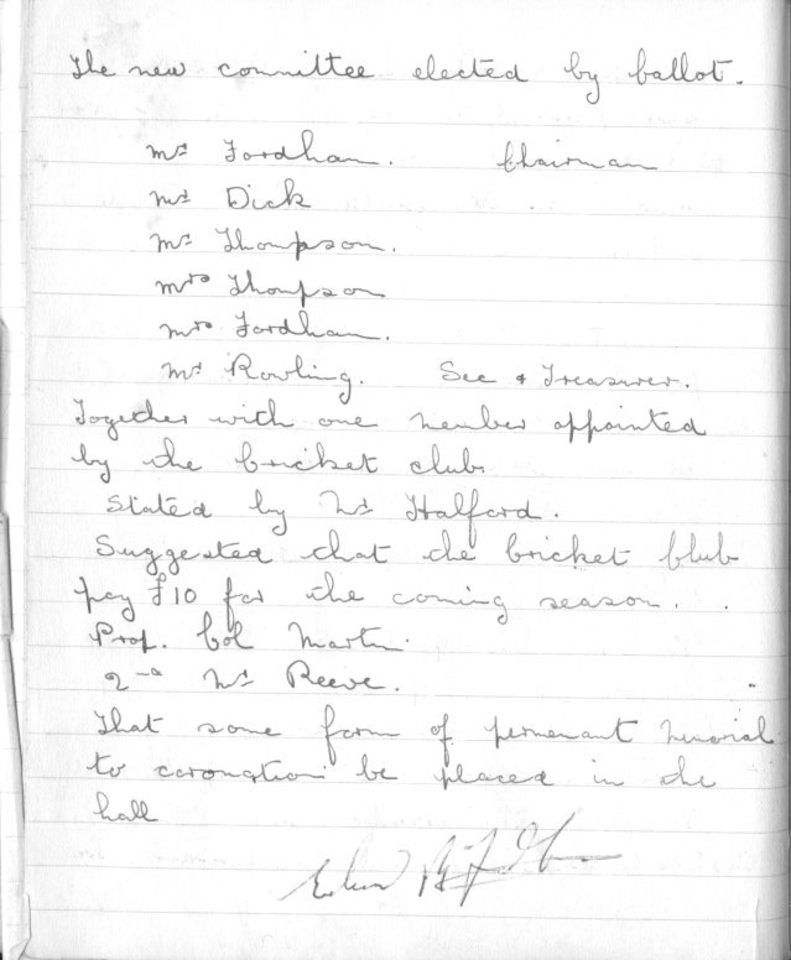 The new committee elected by ballot.
Mr Fordham. Chairman
Mr Dick
Mr Thompson.
Mrs Thompson
Mrs Fordham.
Mr Rowling. Sec & Treasurer.
Together with one member appointed
by the Cricket club.
Stated by Mr Halford.
Suggested that the Cricket Club
pay £10 for the coming season.
Prop. Col Martin.
2nd Mr Reeve.
That some form of permenant Memorial
to coronation be placed in the
hall